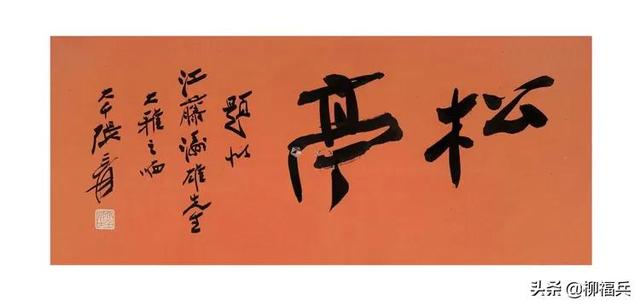 松亭
題似
江藤濤雄先生
大雅之哂
大千張爰
头条 @柳福兵